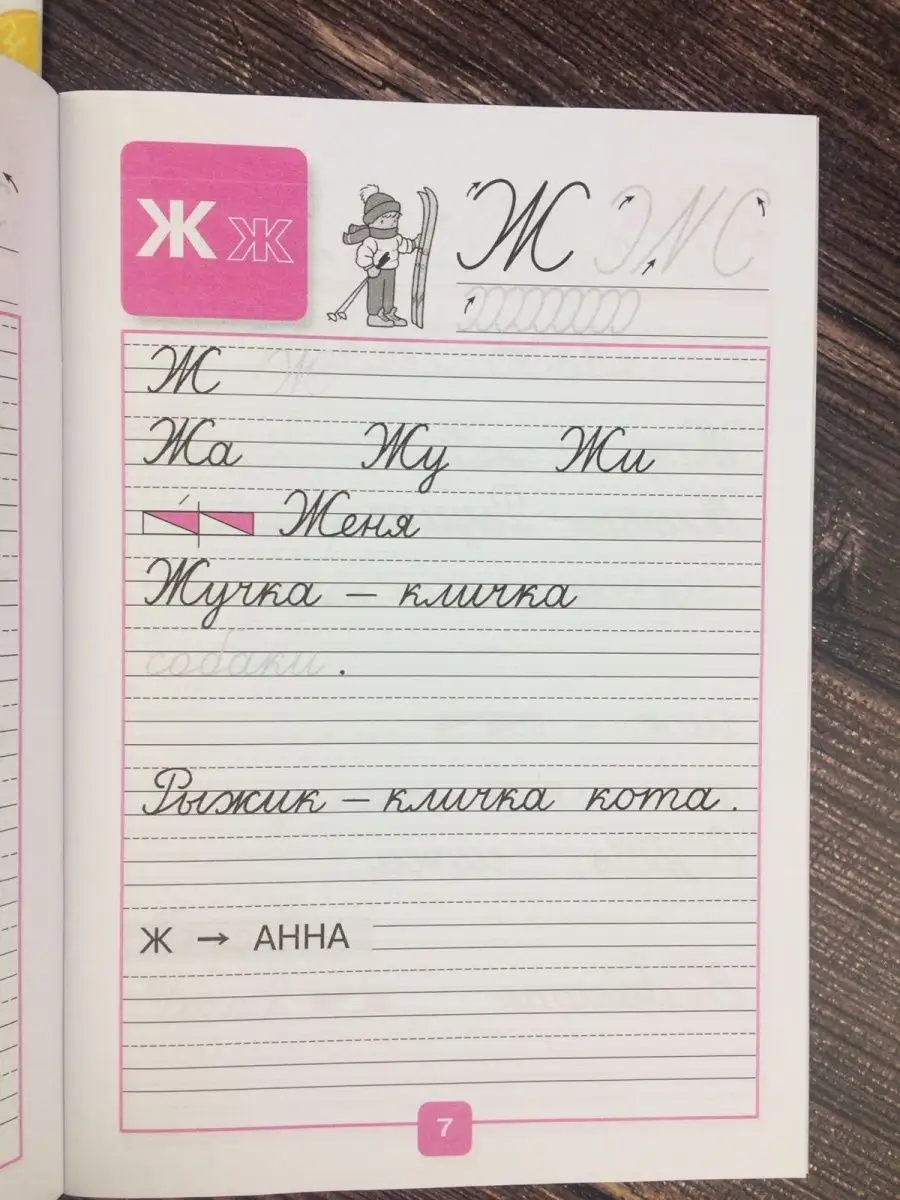 Ж ж
Ж
Ж Ж
Жа Жу Жи
Женя
Жучка – кличка
собаки.
Рыжик – кличка кота.
Ж → АННА
7